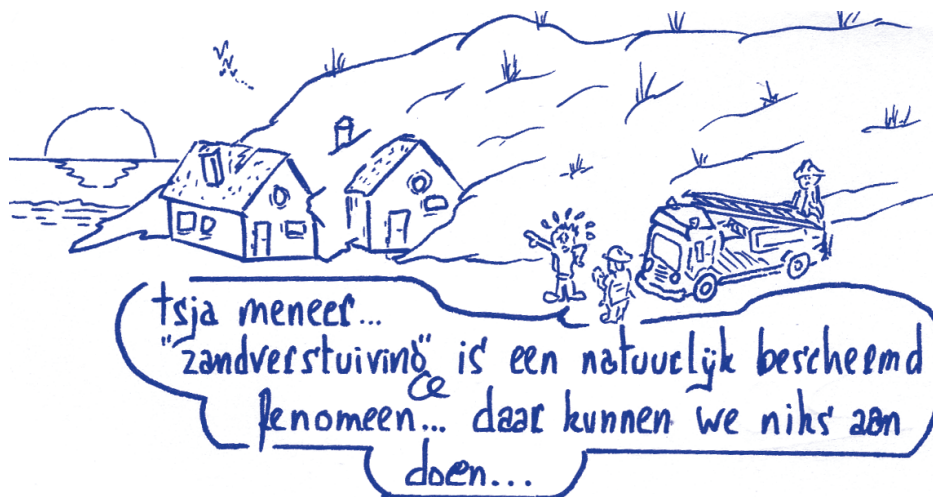 tsja meneer...
"zandverstuiving" is een natuurlijk beschermd
fenomeen... daar kunnen we niks aan
doen...